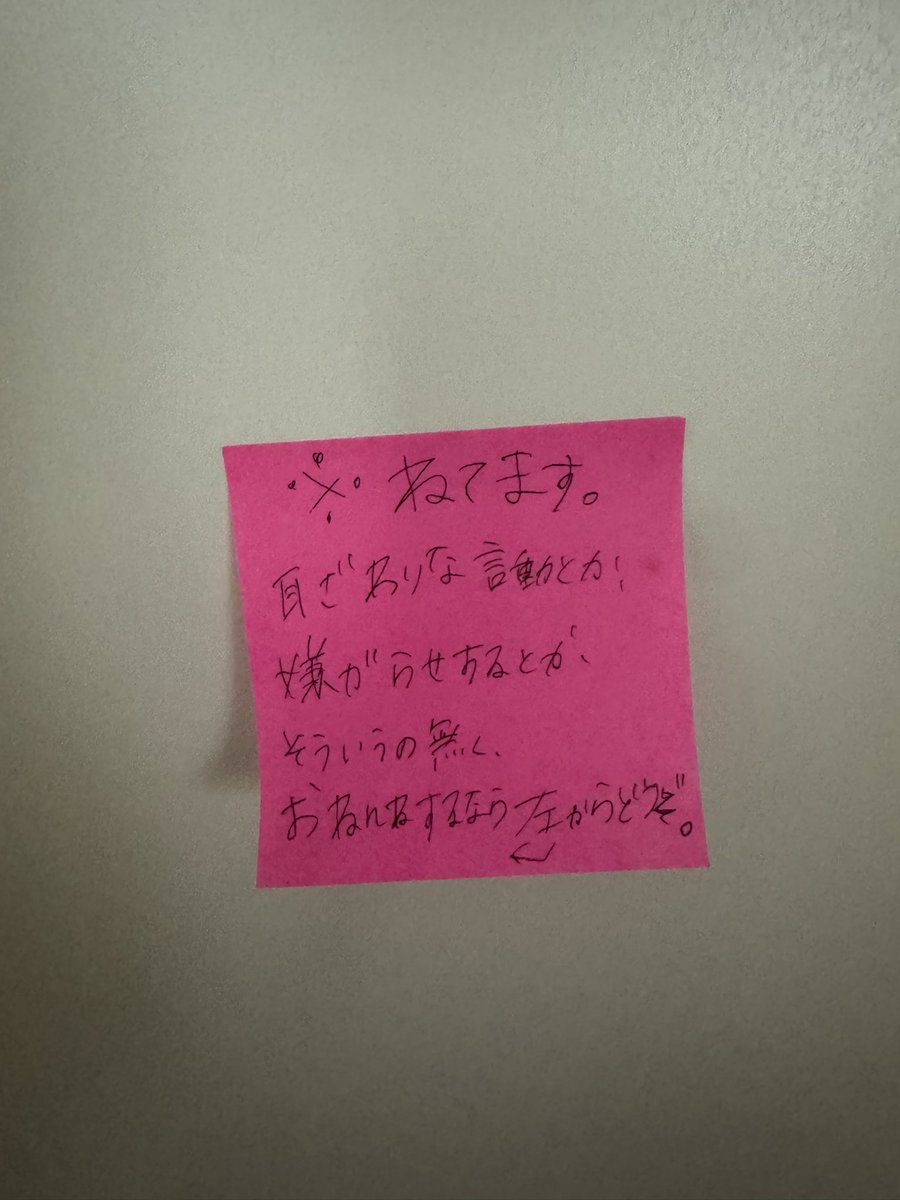 ※ ねてます。
耳ざわりな言動とか、
嫌がらせするとか、
そういうの無く、
おねんねするなら左からどうぞ。
←